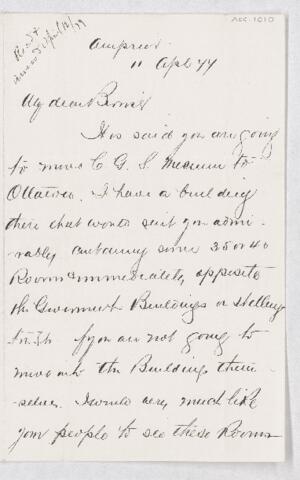 Acc-1010
Recd &
Arnprior
11 Apl 77
My dear
It is said you are going
to move C G S Museum to
Ottawa. I have a building
there that would suit you admi-
rably containing some 35 or 40
Rooms immediately opposite
the Government Buildings on Wellington
St. If you are not going to
move into the Buildings them-
selves. I would very much like
your people to see these Rooms